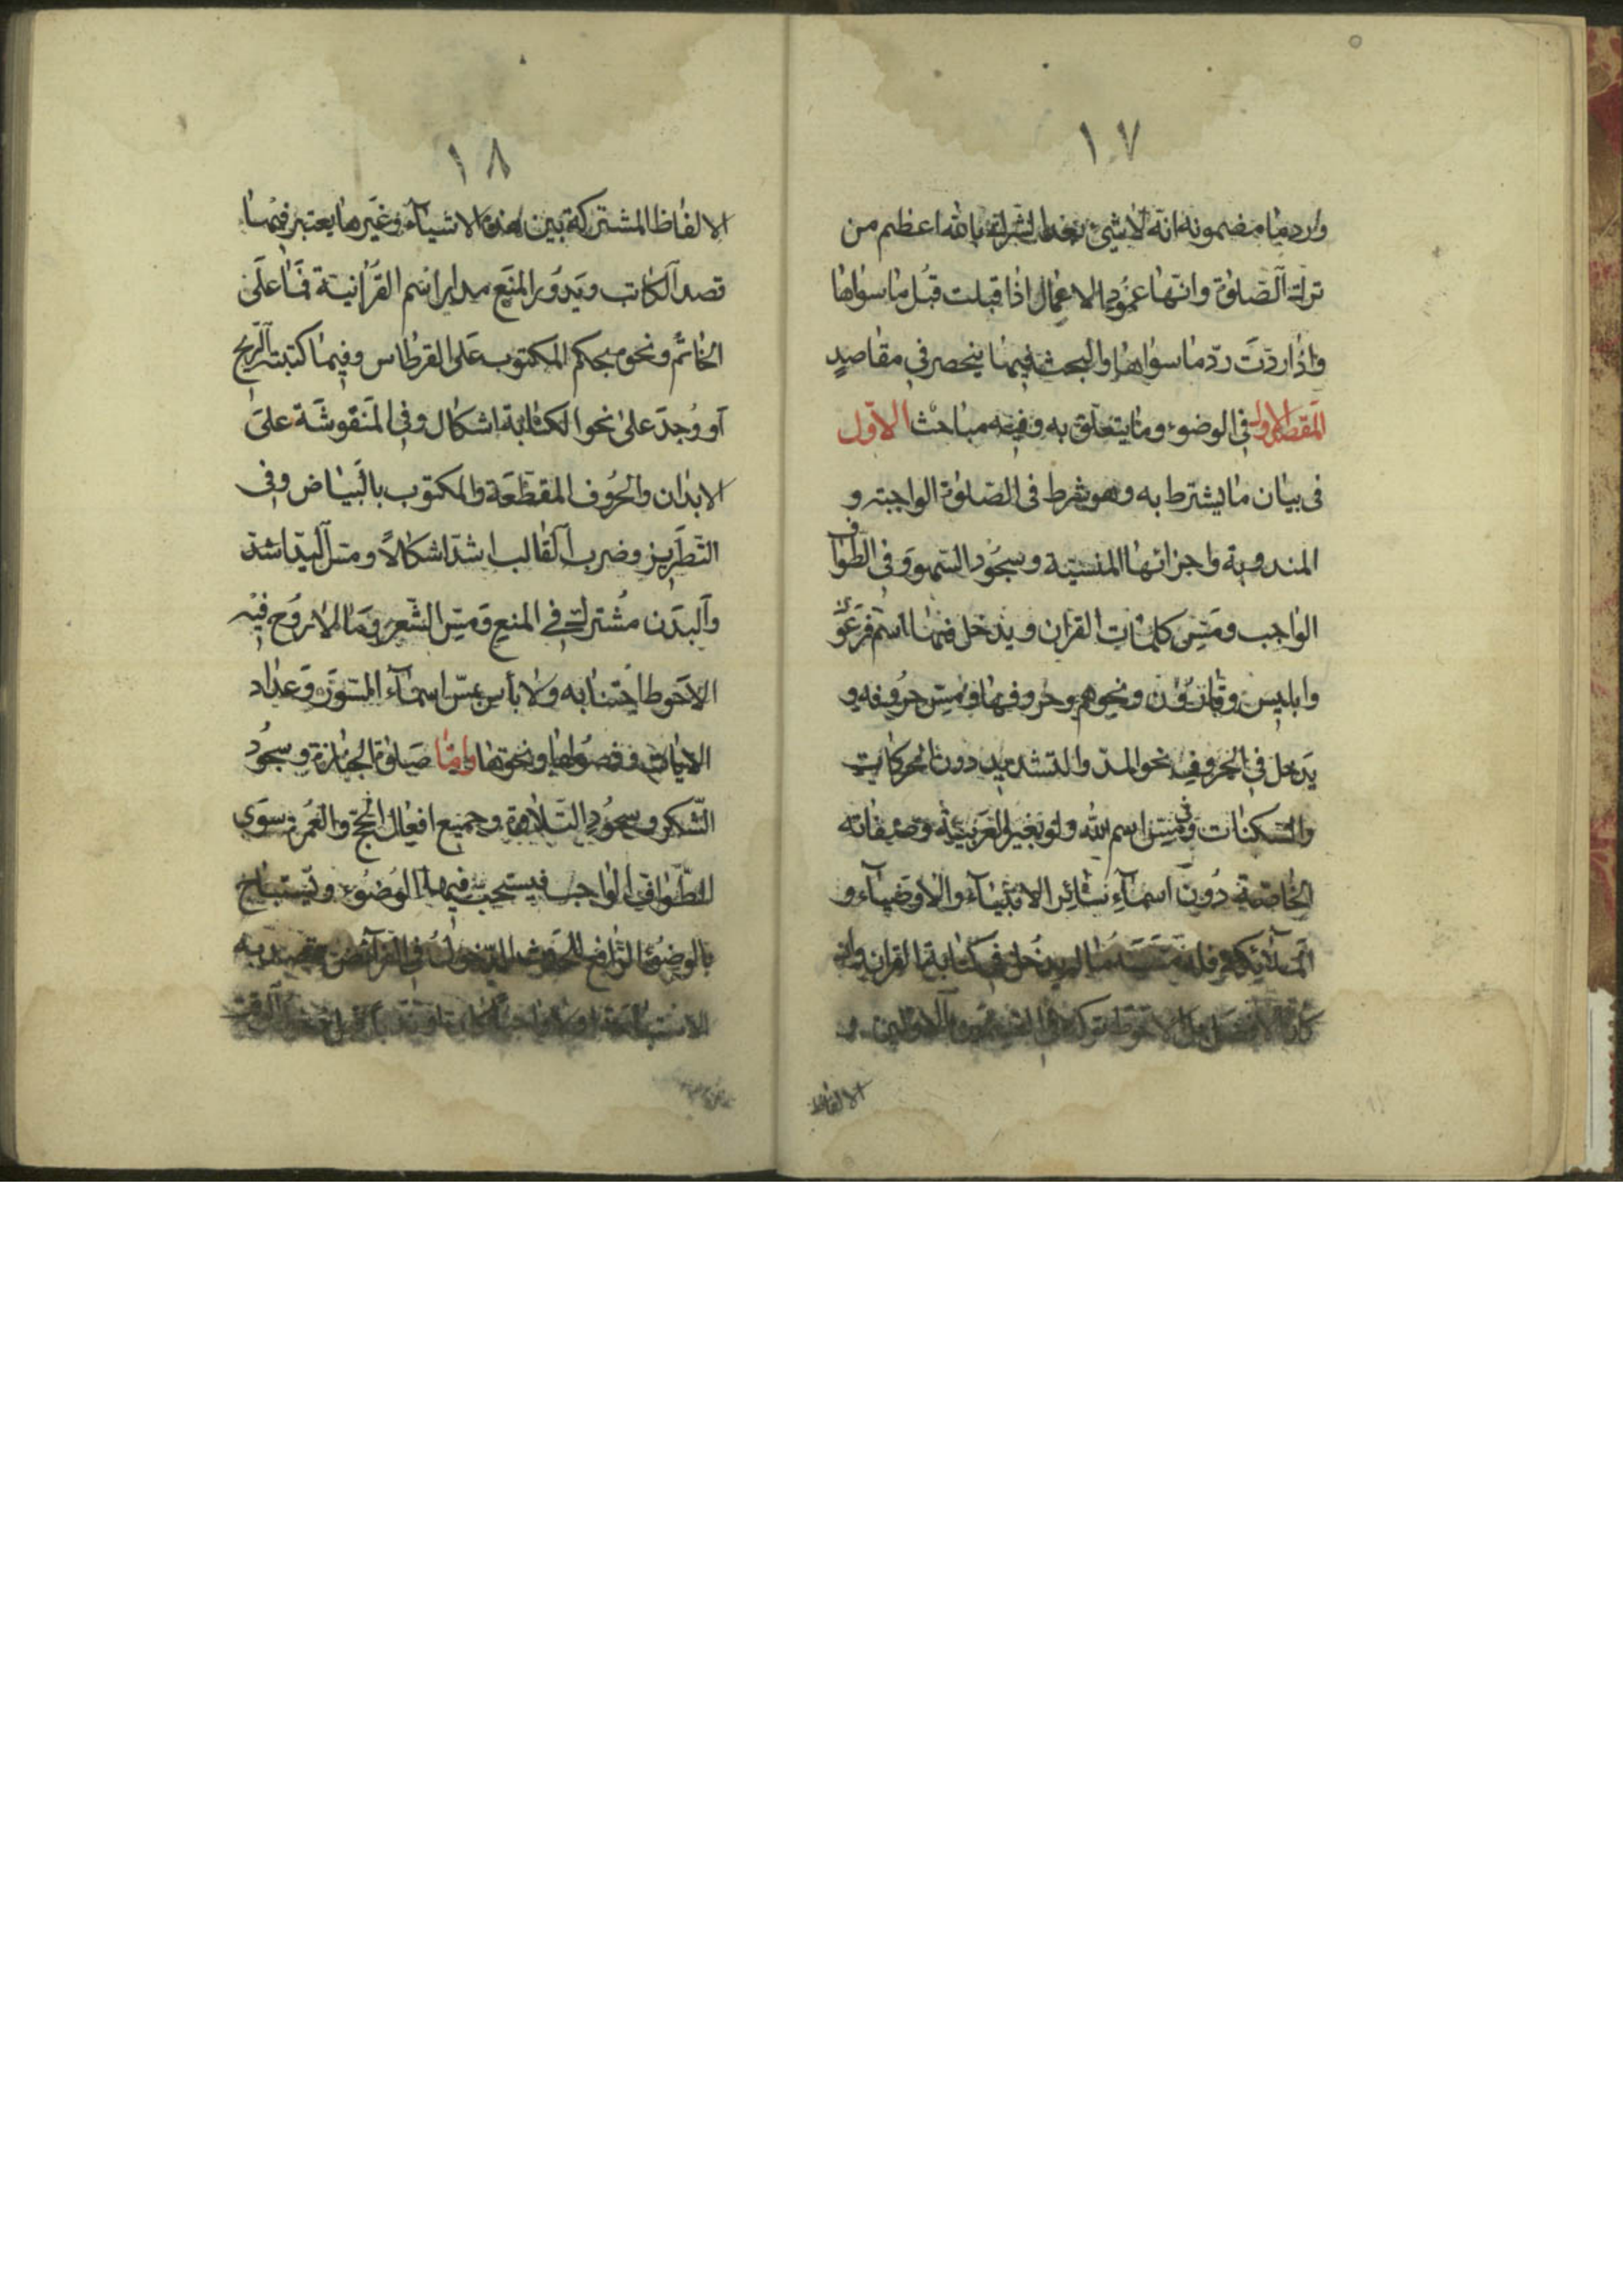 ١٧
وارد ما مضمونه انه لا شيئ بعد الشرك بالله اعظم من
ترك الصّلوة وانّها عمود الاعمال اذا قبلت قُبل ما سواها
واذا ردّت ردّ ما سواها والبحث فيها ينحصر في مقاصدٍ
المقصد الاول في الوضوء وما يتعلق به وفيه مباحث الاوّل
فى بيان ما يشترط به وهو شرط فى الصّلوة الواجبة و
المندوبة واجزائها المنسيّة وسجود السّهو وفى الطّواف
الواجب ومسّ كلمات القران ويدخل فيها اسم فرعون
وابليس وقارون ونحوهم وحروفها ومسّ حروفه و
يدخل في الحروف نحو المدّ والتشديد دون الحركات
والسّكنات وفى مسّ اسم الله ولو بغير العربيّة وصفاته
الخاصّة دون اسماء سائر الانبياء والاوصياء و
الملائكة ما لم يدخل في كتابة القران وان
كان الاحوط تركه في
الالفاظ
١٨
الالفاظ المشتركة بين هذه الاشياء وغيرها يعتبر فيها
قصد الكاتب ويدور المنع مدار اسم القرانية فما على
الخاتم ونحوه بحكم المكتوب على القرطاس وفيما كتبته الريح
او وُجد على نحو الكتابة اشكال وفى المنقوشة على
الابدان والحروف المقطّعة والمكتوب بالبياض وفى
التّطريز وضرب القالب اشدّ اشكالاً ومسّ اليد اشدّ
والبدن مُشترك في المنع ومسّ الشّعر وما لا روُح فيه
الاحوط اجتنابه ولا بأس بمسّ اسماء السّور وعداد
الايات وفصُولها ونحوها وامّا صلوة الجنازة وسجُود
الشّكر وسجُود التّلاوة وجميع افعال الحجّ والعُمرة سوى
الطّواف الواجب فيستحب فيها الوُضوُء ويستباح
بالوضوُء الرّافع للحدث الدّخول في الفرائض قصد به
الاستباحة اولا واجباً كان او ندباً قبل دخول الوقت